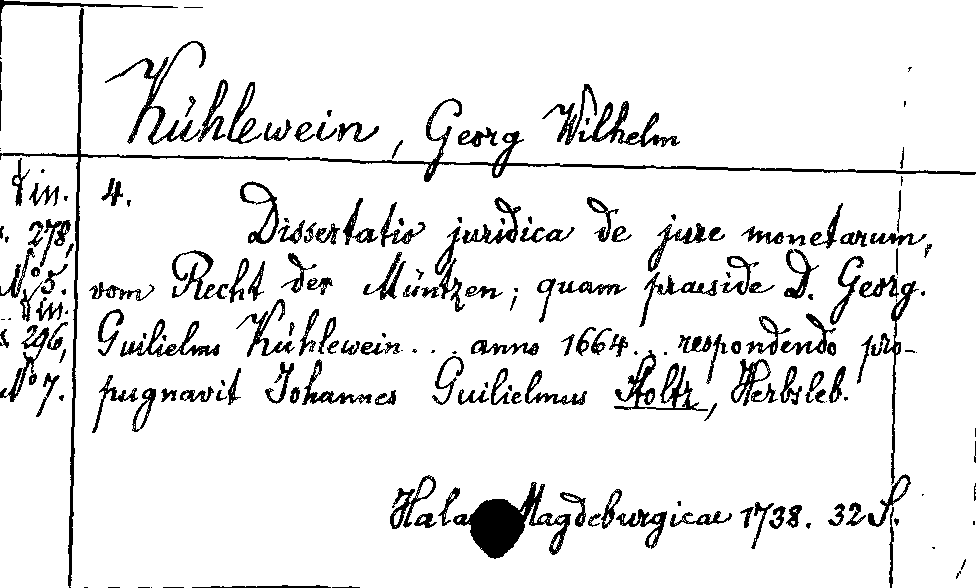 Kühlewein, Georg Wilhelm
Fin. 4.
278, Dissertatio juridica de jure monetarum,
No 5. vom Recht der Müntzen; quam praeside D. Georg.
Fin.
296, Guilielmo Kühlewein... anno 1664... respondendo pro-
No 7. pugnavit Johannes Guilielmus Stoltz, Herbsleb.
Halae Magdeburgicae 1738. 32 S.